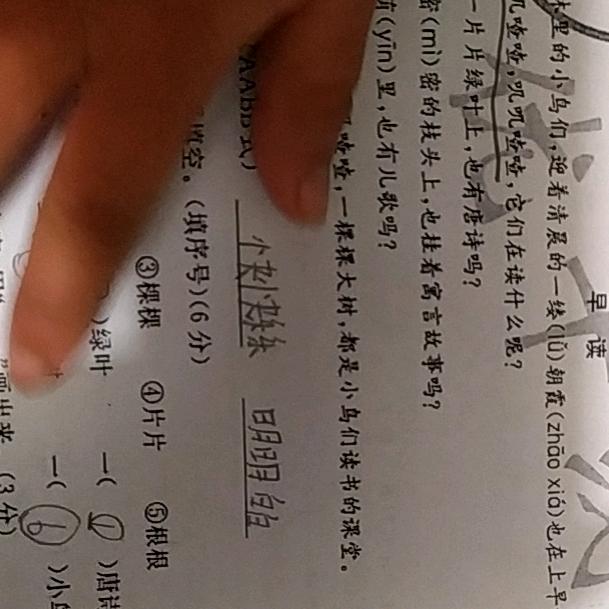 早 读
木里的小鸟们,迎着清晨的一缕(lǚ)朝霞(zhāo xiá)也在上早
叽喳喳,叽叽喳喳,它们在读什么呢?
一片片绿叶上,也有唐诗吗?
密(mì)密的枝头上,也挂着寓言故事吗?
(yīn)里,也有儿歌吗?
喳喳,一棵棵大树,都是小鸟们读书的课堂。
AABB式) 快快乐乐 明明白白
填空。(填序号)(6分)
③棵棵 ④片片 ⑤根根
)绿叶 一( )唐诗
一(⑥)小鸟
画出来。(3分)